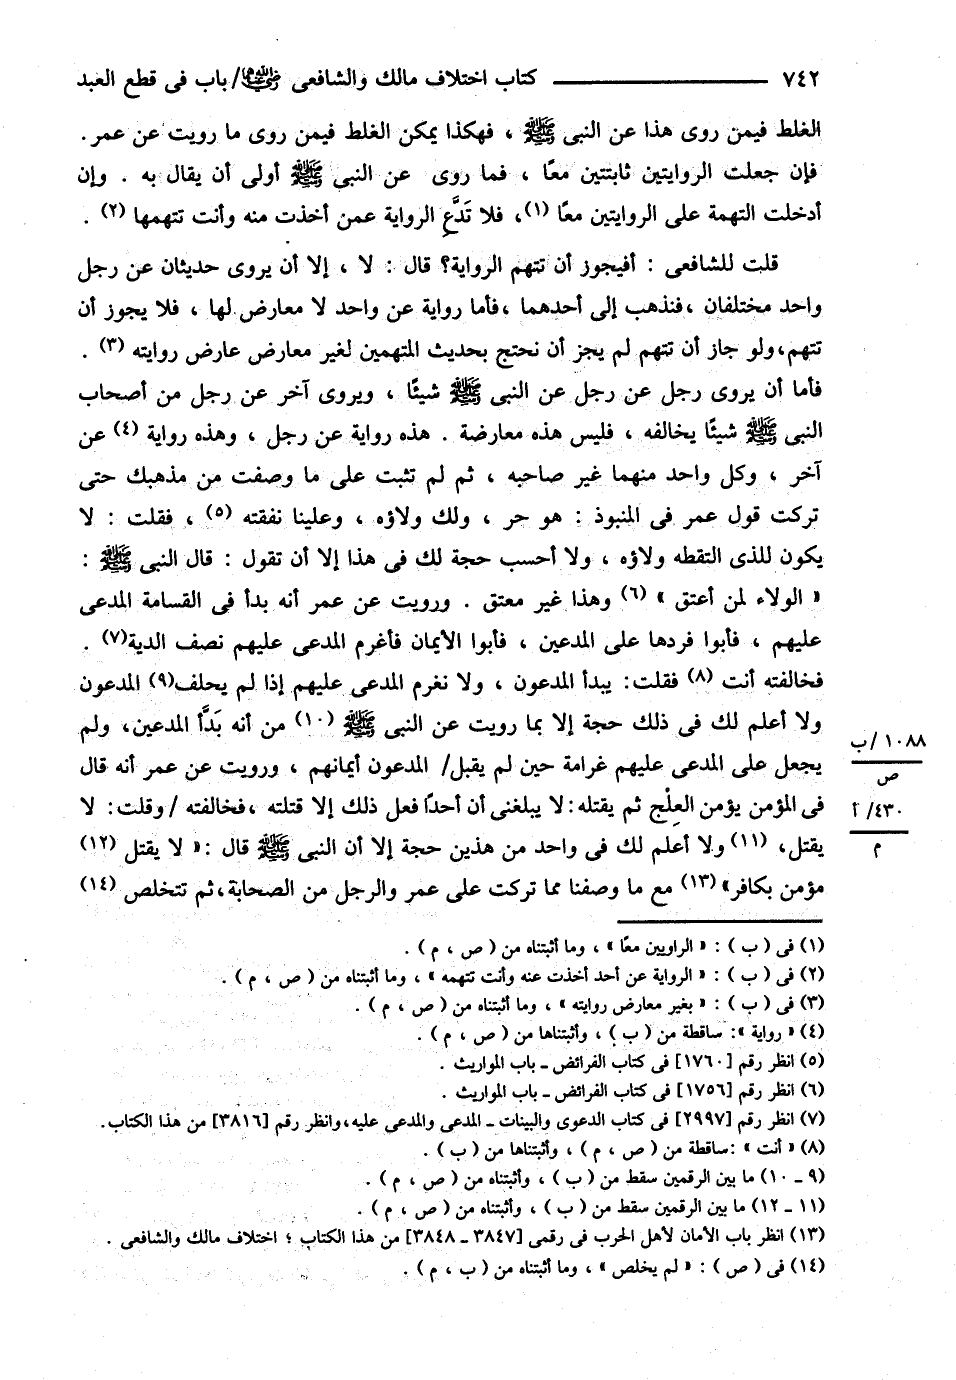 ٧٤٢ ــــــ كتاب اختلاف مالك والشافعى رضي الله عنهما / باب فى قطع العبد
الغلط فيمن روى هذا عن النبى ﷺ ، فهكذا يمكن الغلط فيمن روى ما رويت عن عمر .
فإن جعلت الروايتين ثابتتين معًا ، فما روى عن النبى ﷺ أولى أن يقال به . وإن
أدخلت التهمة على الروايتين معًا (١)، فلا تَدَّعِ الرواية عمن أخذت منه وأنت تتهمها (٢) .
قلت للشافعى : أفيجوز أن تتهم الرواية؟ قال : لا ، إلا أن يروى حديثان عن رجل
واحد مختلفان ،فنذهب إلى أحدهما ،فأما رواية عن واحد لا معارض لها ، فلا يجوز أن
تتهم،ولو جاز أن تتهم لم يجز أن نحتج بحديث المتهمين لغير معارض عارض روايته (٣) .
فأما أن يروى رجل عن رجل عن النبى ﷺ شيئًا ، ويروى آخر عن رجل من أصحاب
النبى ﷺ شيئًا يخالفه ، فليس هذه معارضة . هذه رواية عن رجل ، وهذه رواية (٤) عن
آخر ، وكل واحد منهما غير صاحبه ، ثم لم تثبت على ما وصفت من مذهبك حتى
تركت قول عمر فى المنبوذ : هو حر ، ولك ولاؤه ، وعلينا نفقته (٥) ، فقلت : لا
يكون للذى التقطه ولاؤه ، ولا أحسب حجة لك فى هذا إلا أن تقول : قال النبى ﷺ :
« الولاء لمن أعتق » (٦) وهذا غير معتق . ورويت عن عمر أنه بدأ فى القسامة المدعى
عليهم ، فأبوا فردها على المدعين ، فأبوا الأيمان فأغرم المدعى عليهم نصف الدية(٧) .
فخالفته أنت (٨) فقلت: يبدأ المدعون ، ولا نغرم المدعى عليهم إذا لم يحلف(٩) المدعون
ولا أعلم لك فى ذلك حجة إلا بما رويت عن النبى ﷺ (١٠) من أنه بَدَّأ المدعين، ولم
يجعل على المدعى عليهم غرامة حين لم يقبل/ المدعون أيمانهم ، ورويت عن عمر أنه قال
فى المؤمن يؤمن العِلْج ثم يقتله: لا يبلغنى أن أحدًا فعل ذلك إلا قتلته ،فخالفته /وقلت: لا
يقتل، (١١) ولا أعلم لك فى واحد من هذين حجة إلا أن النبى ﷺ قال :« لا يقتل (١٢)
مؤمن بكافر» (١٣) مع ما وصفنا مما تركت على عمر والرجل من الصحابة،ثم تتخلص (١٤)
١٠٨٨ /ب
ص
٤٣٠/ أ
م
(١) فى ( ب ) : « الراويين معًا » ، وما أثبتناه من ( ص ، م ) .
(٢) فى ( ب ) : « الرواية عن أحد أخذت عنه وأنت تتهمه » ، وما أثبتناه من ( ص ، م ) .
(٣) فى ( ب ) : « بغير معارض روايته » ، وما أثبتناه من ( ص ، م ) .
(٤) « رواية »: ساقطة من ( ب ) ، وأثبتناها من ( ص ، م ) .
(٥) انظر رقم [١٧٦٠] فى كتاب الفرائض ـ باب المواريث .
(٦) انظر رقم [١٧٥٦] فى كتاب الفرائض ـ باب المواريث .
(٧) انظر رقم [٢٩٩٧] فى كتاب الدعوى والبينات ـ المدعى والمدعى عليه،وانظر رقم [٣٨١٦] من هذا الكتاب.
(٨) « أنت » :ساقطة من ( ص ، م ) ، وأثبتناها من ( ب ) .
(٩ ـ ١٠) ما بين الرقمين سقط من ( ب ) ، وأثبتناه من ( ص ، م ) .
(١١ ـ ١٢) ما بين الرقمين سقط من ( ب ) ، وأثبتناه من ( ص ، م ) .
(١٣) انظر باب الأمان لأهل الحرب فى رقمى [٣٨٤٧ ـ ٣٨٤٨] من هذا الكتاب ؛ اختلاف مالك والشافعى .
(١٤) فى ( ص ) : « لم يخلص » ، وما أثبتناه من ( ب ، م ) .